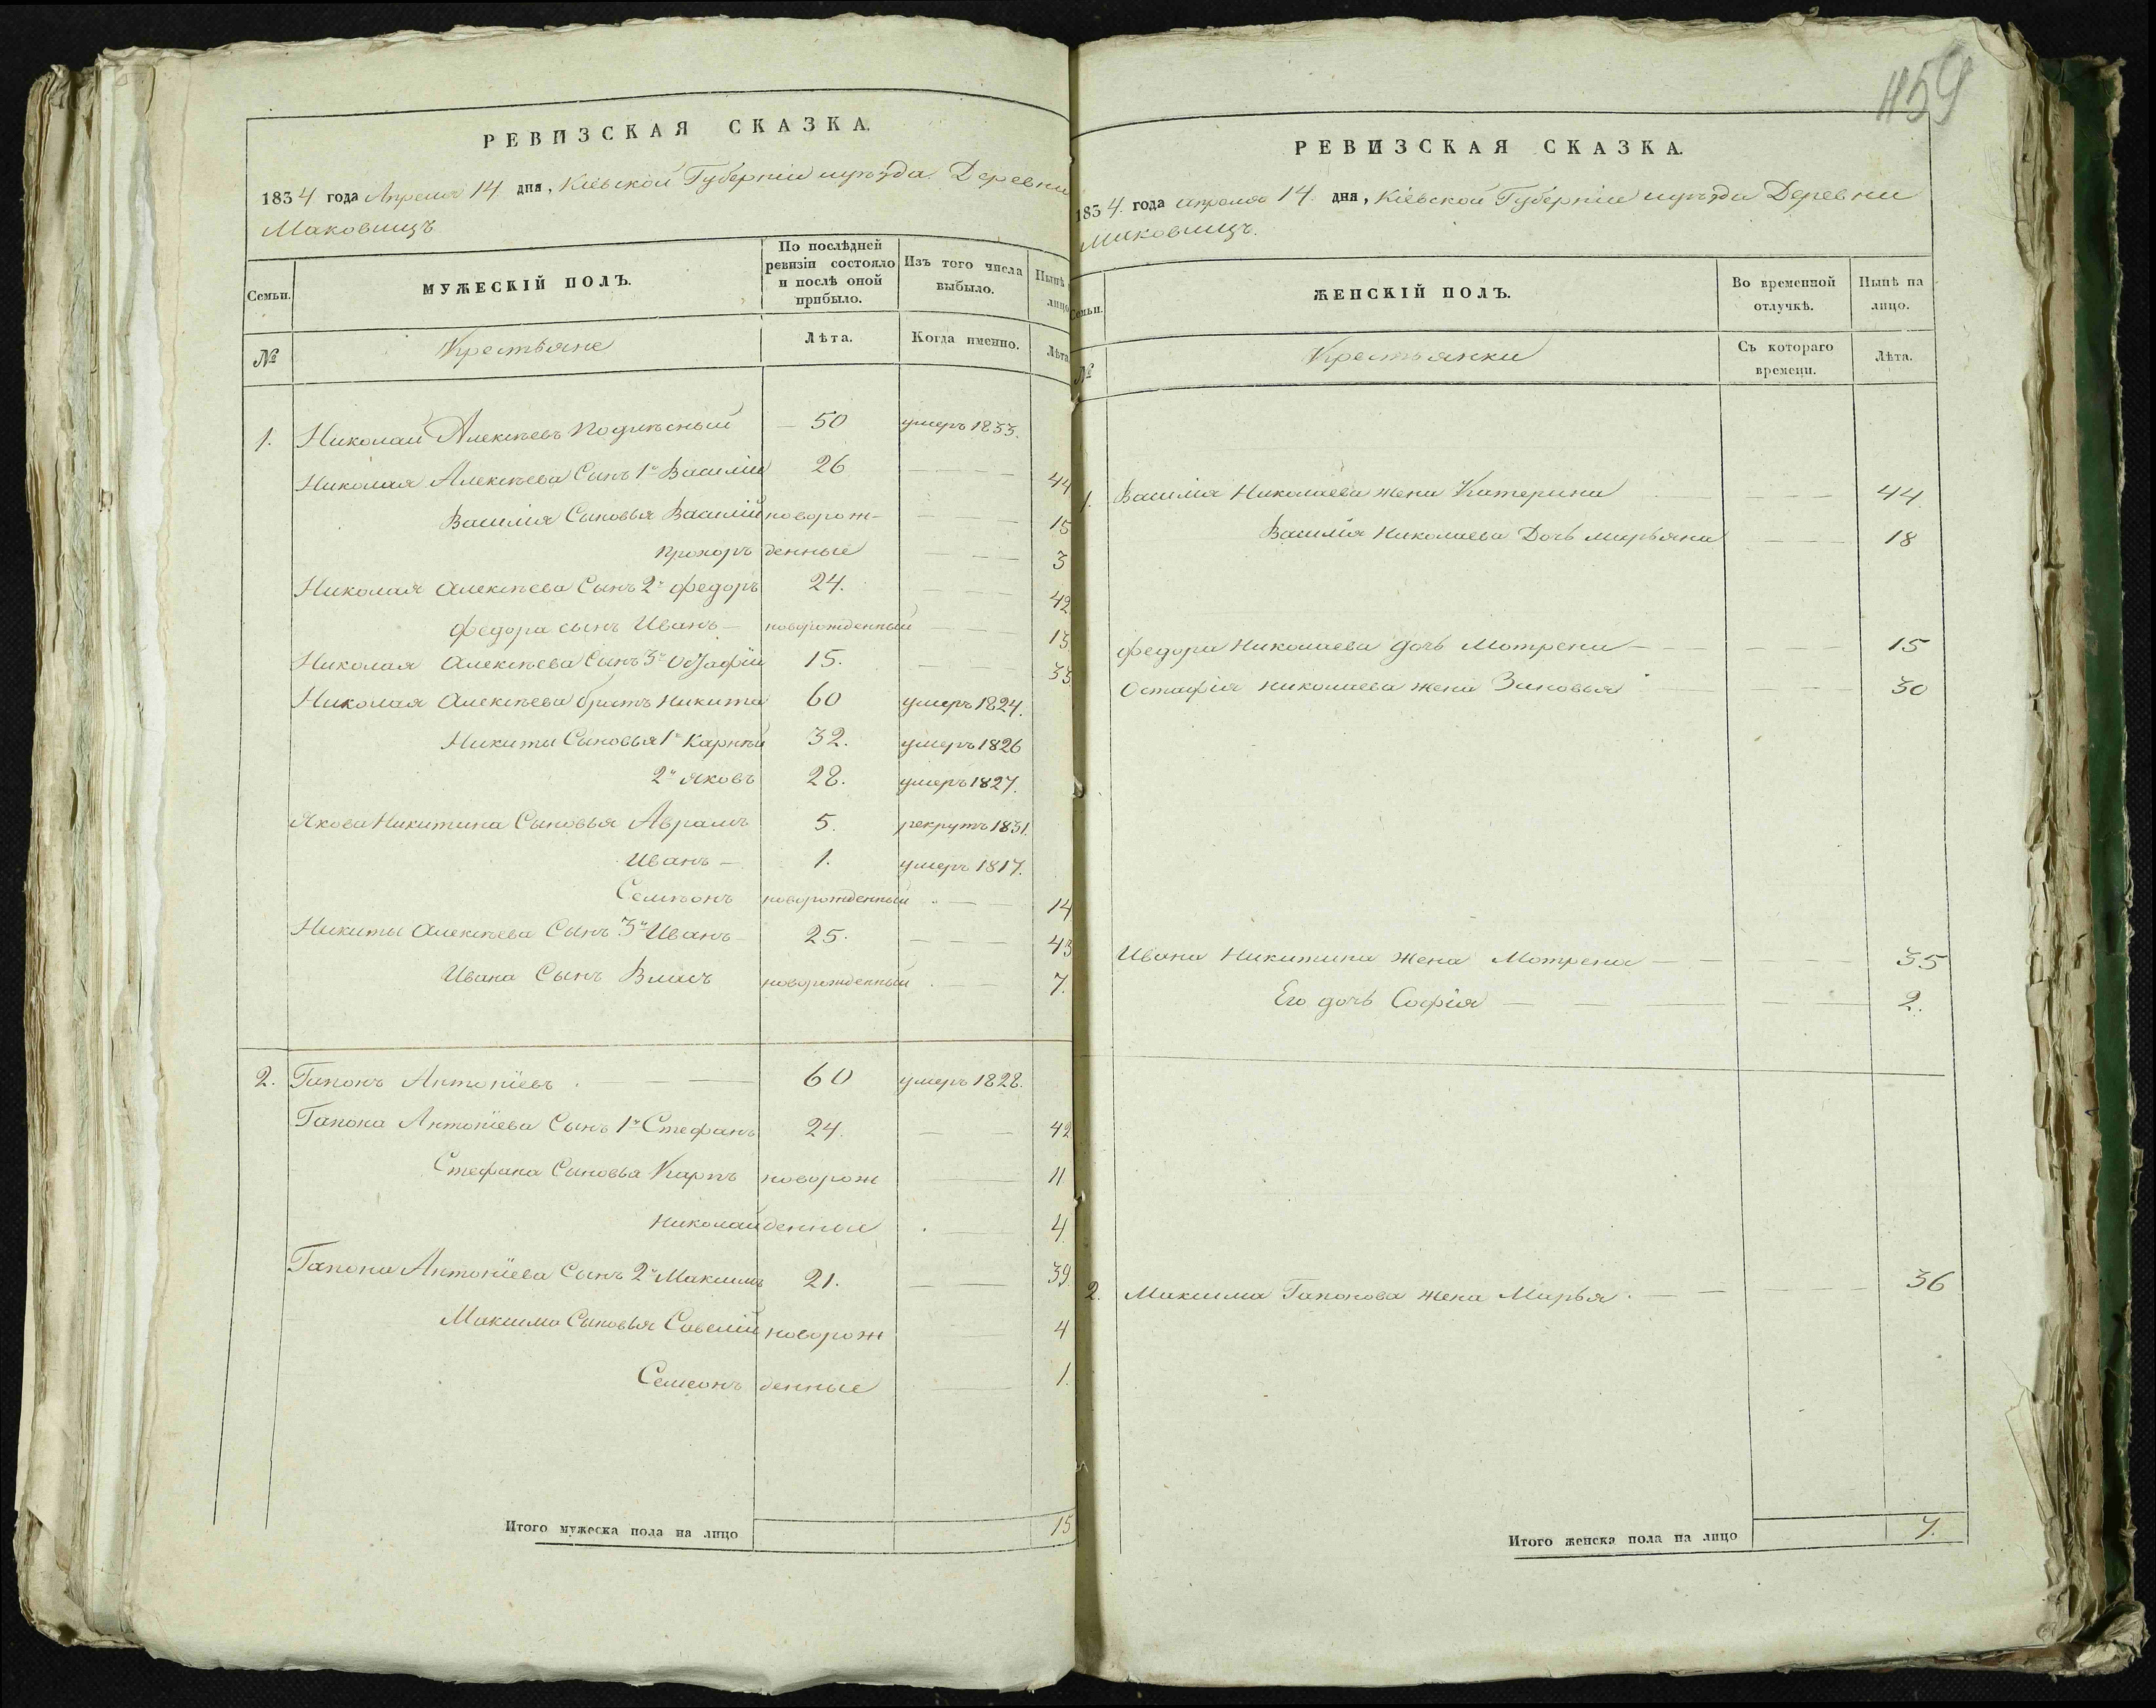 РЕВИЗСКАЯ СКАЗКА.
1834 года Апреля 14 дня, Кіевской Губерніи и уѣзда Деревни
Маковищъ
Семьи.
МУЖЕСКІЙ ПОЛЪ.
По послѣдней ревизіи состояло и послѣ оной прибыло.
Изъ того числа выбыло.
Нынѣ лицо
№
Крестьяне
Лѣта.
Когда именно.
Лѣта
1. Николай Алексѣевъ 50 умеръ 1833.
Николая Алексѣева Сынъ 1й Василій 26 — — — 44
Василія Сыновья Василій новорож- — — 15
Прохоръ денные — — — 3
Николая Алексѣева Сынъ 2й Федоръ 24. — — — 42
Федора сынъ Иванъ — новорожденный — — 13
Николая Алексѣева Сынъ 3й 15. — — — 33
Николая Алексѣева братъ Никита 60 умеръ 1824.
Никиты Сыновья 1й Карнѣй 32. умеръ 1826
2й Яковъ 28. умеръ 1827.
Якова Никитина Сыновья Аврамъ 5. рекрутъ 1831.
Иванъ — 1. умеръ 1817.
Семѣонъ новорожденный — — 14
Никиты Алексѣева Сынъ 3й Иванъ — 25. — — — 43
Ивана Сынъ Власъ новорожденный — — 7.
2. Гапонъ Антоніевъ — — — 60 умеръ 1828.
Гапона Антоніева Сынъ 1й Стефанъ 24. — — 42
Стефана Сыновья Карпъ новорож — 11
Николай денные — 4
Гапона Антоніева Сынъ 2й Максимъ 21. — — 39.
Максима Сыновья Савелій новорож — 4
Семеонъ денные — 1.
Итого мужеска пола на лицо 15
459
РЕВИЗСКАЯ СКАЗКА.
1834. года апреля 14 дня, Кіевской Губерніи и уѣзда Деревни
Маковищъ.
Семьи.
ЖЕНСКІЙ ПОЛЪ.
Во временной отлучкѣ.
Нынѣ на лицо.
№
Крестьянки
Съ котораго времени.
Лѣта.
1. Василія Николаева жена Катерина — — — 44.
Василія Николаева Дочь Марьяна — — — 18
Федора Николаева дочь Мотрена — — — 15
Остафія Николаева жена Зиновья — — — 30
Ивана Никитина жена Мотрена — — — 35
Его дочь Софія — — — 2.
2. Максима Гапонова жена Марья. — — — 36
Итого женска пола на лицо 7.